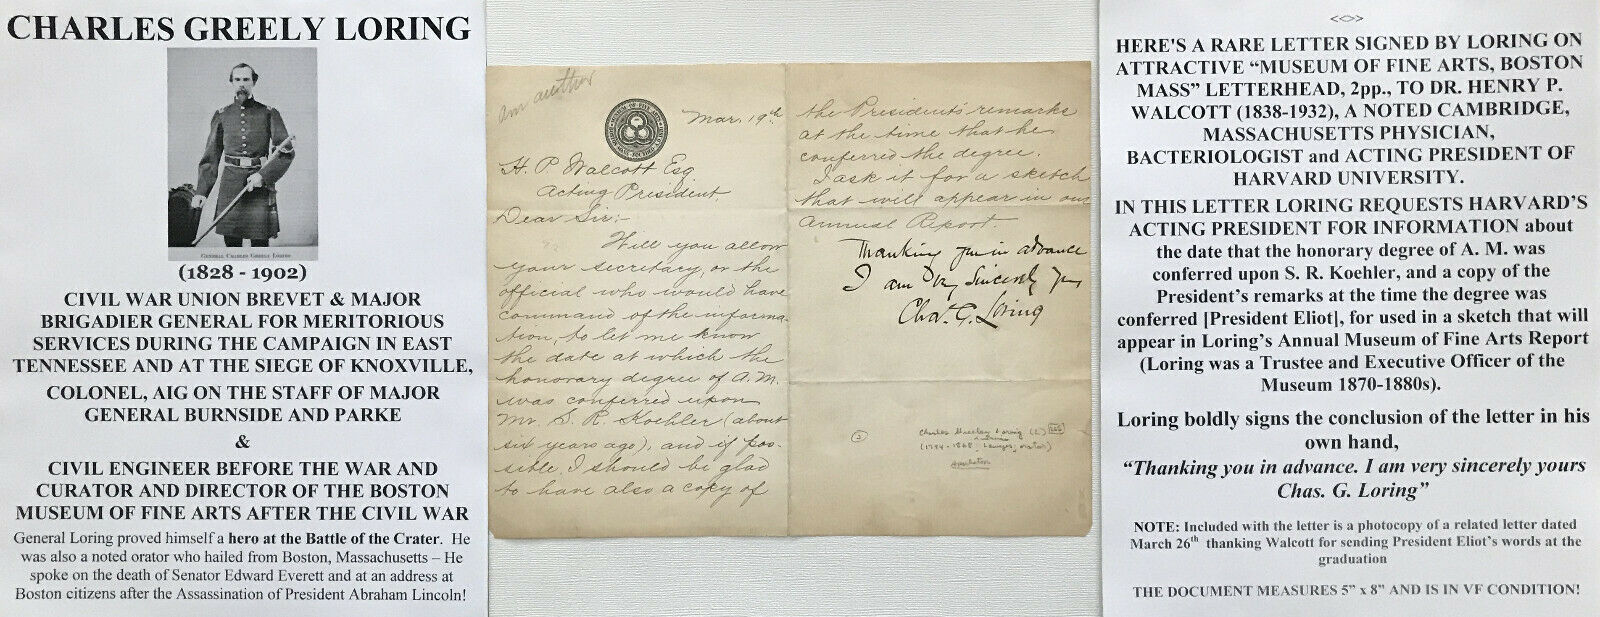 CHARLES GREELY LORING
GENERAL CHARLES GREELY LORING
(1828 - 1902)
CIVIL WAR UNION BREVET & MAJOR
BRIGADIER GENERAL FOR MERITORIOUS
SERVICES DURING THE CAMPAIGN IN EAST
TENNESSEE AND AT THE SIEGE OF KNOXVILLE,
COLONEL, AIG ON THE STAFF OF MAJOR
GENERAL BURNSIDE AND PARKE
&
CIVIL ENGINEER BEFORE THE WAR AND
CURATOR AND DIRECTOR OF THE BOSTON
MUSEUM OF FINE ARTS AFTER THE CIVIL WAR
General Loring proved himself a hero at the Battle of the Crater. He
was also a noted orator who hailed from Boston, Massachusetts – He
spoke on the death of Senator Edward Everett and at an address at
Boston citizens after the Assassination of President Abraham Lincoln!
am author
Mar. 19th
H. P. Walcott Esq
Acting President.
Dear Sir:-
Will you allow
your secretary, or the
official who would have
command of the informa-
tion, to let me know
the date at which the
honorary degree of A.M.
was conferred upon
Mr. S. R. Koehler (about
six years ago), and if pos-
sible, I should be glad
to have also a copy of
the President's remarks
at the time that he
conferred the degree.
I ask it for a sketch
that will appear in our
Annual Report.
Thanking you in advance
I am Very Sincerely yrs
Chas. G. Loring
Charles Greeley Loring
(1794-1868 Lawyer, orator)
<<>>
HERE'S A RARE LETTER SIGNED BY LORING ON
ATTRACTIVE “MUSEUM OF FINE ARTS, BOSTON
MASS” LETTERHEAD, 2pp., TO DR. HENRY P.
WALCOTT (1838-1932), A NOTED CAMBRIDGE,
MASSACHUSETTS PHYSICIAN,
BACTERIOLOGIST and ACTING PRESIDENT OF
HARVARD UNIVERSITY.
IN THIS LETTER LORING REQUESTS HARVARD'S
ACTING PRESIDENT FOR INFORMATION about
the date that the honorary degree of A. M. was
conferred upon S. R. Koehler, and a copy of the
President's remarks at the time the degree was
conferred [President Eliot], for used in a sketch that will
appear in Loring's Annual Museum of Fine Arts Report
(Loring was a Trustee and Executive Officer of the
Museum 1870-1880s).
Loring boldly signs the conclusion of the letter in his
own hand,
“Thanking you in advance. I am very sincerely yours
Chas. G. Loring”
NOTE: Included with the letter is a photocopy of a related letter dated
March 26th thanking Walcott for sending President Eliot's words at the
graduation
THE DOCUMENT MEASURES 5” x 8” AND IS IN VF CONDITION!